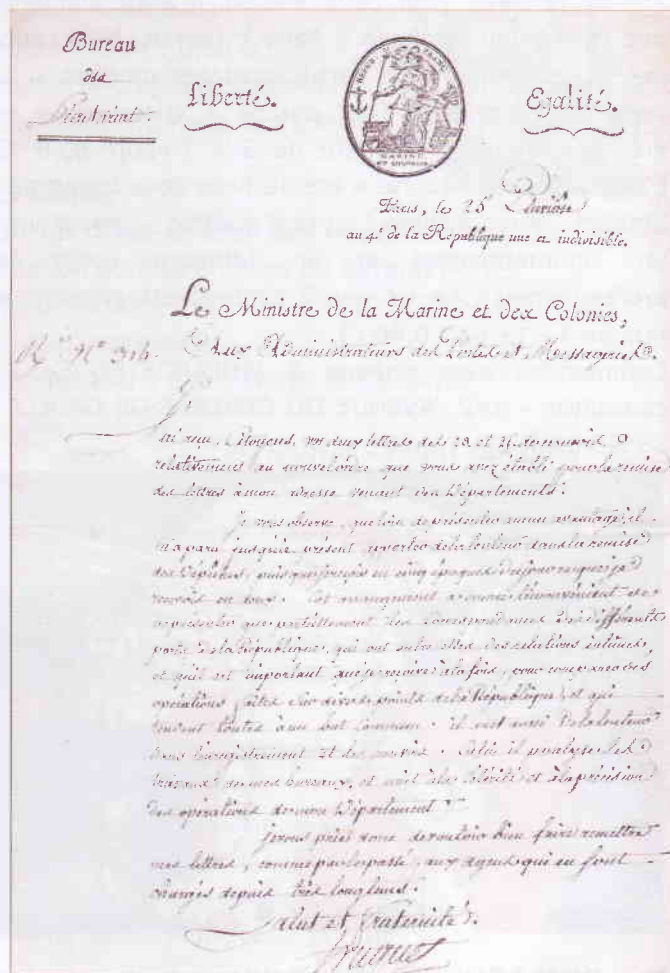 Bureau
des
Liberté.
Egalité.
MARINE
Paris, le 25
au 4.e de la République une et indivisible.
Le Ministre de la Marine et des Colonies,
Aux Administrateurs des Postes et Messageries.
J'ai reçu, Citoyens, vos deux lettres des 19 et
relativement au nouvel ordre que vous avez établi pour la remise
des lettres à mon adresse venant des Départements.
Je vous observe, que loin de présenter aucun avantage, il
m'a paru jusqu'à présent apporter de la lenteur dans la remise
des Dépêches, puisque je reçois en cinq époques du jour ce que je
recevois en deux. Cet arrangement a encore l'inconvénient de
ne présenter que partiellement les Correspondances des différents
ports de la République, qui ont entre elles des relations intimes,
et qu'il est important que je reçoive à la fois, pour
opérations faites sur divers points de la République, et qui
tendent toutes à un but commun. il met aussi de la lenteur
dans l'enregistrement et les envois. enfin il paralyse les
travaux de mes bureaux, et nuit à la célérité et à la précision
des opérations de mon Département.
je vous prie donc de vouloir bien faire remettre
mes lettres, comme par le passé, aux agens qui en sont
chargés depuis très longtems.
Salut et fraternité.
Truguet